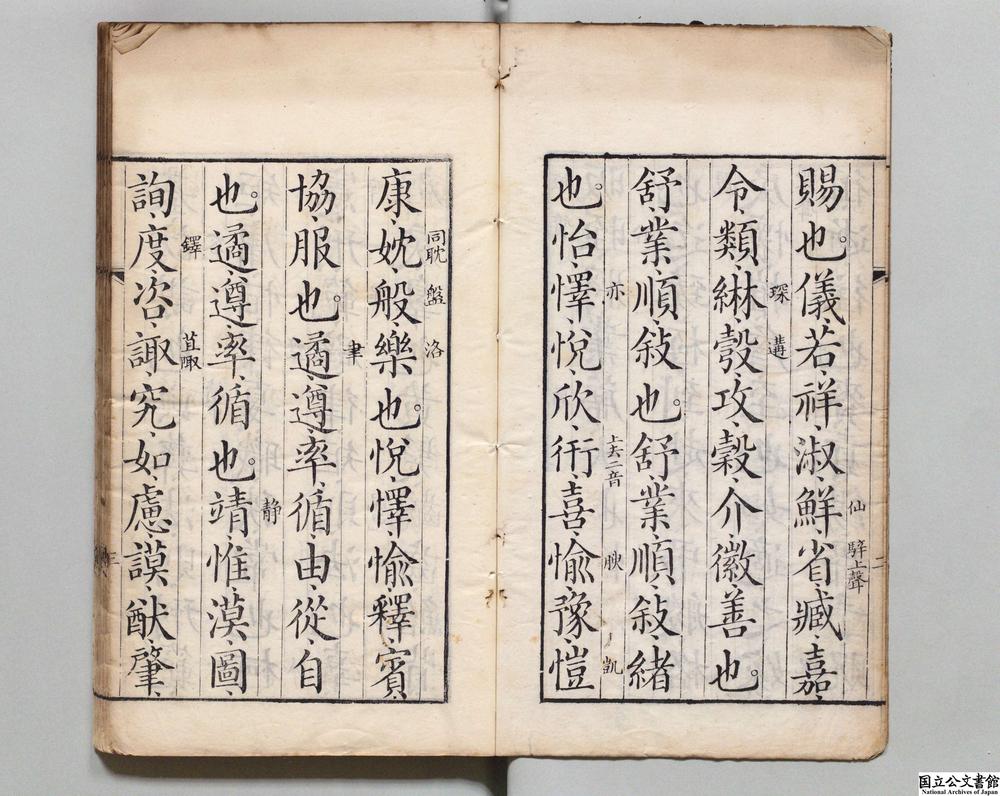 賜也。儀若祥淑鮮省臧嘉
仙 騂上聲
二
令類綝彀攻穀介徽善也。
琛 遘
舒業順敍也。舒業順敍緒
也。怡懌悅欣衎喜愉豫愷
亦 上去二音 腴 凱
康妉般樂也。悅懌愉釋賓
同耽 盤 洛
協服也。遹遵率循由從自
聿
也。遹遵率循也。靖惟漠圖
靜
詢度咨諏究如慮謨猷肇
鐸 苴陬
三
國立公文書館
National Archives of Japan